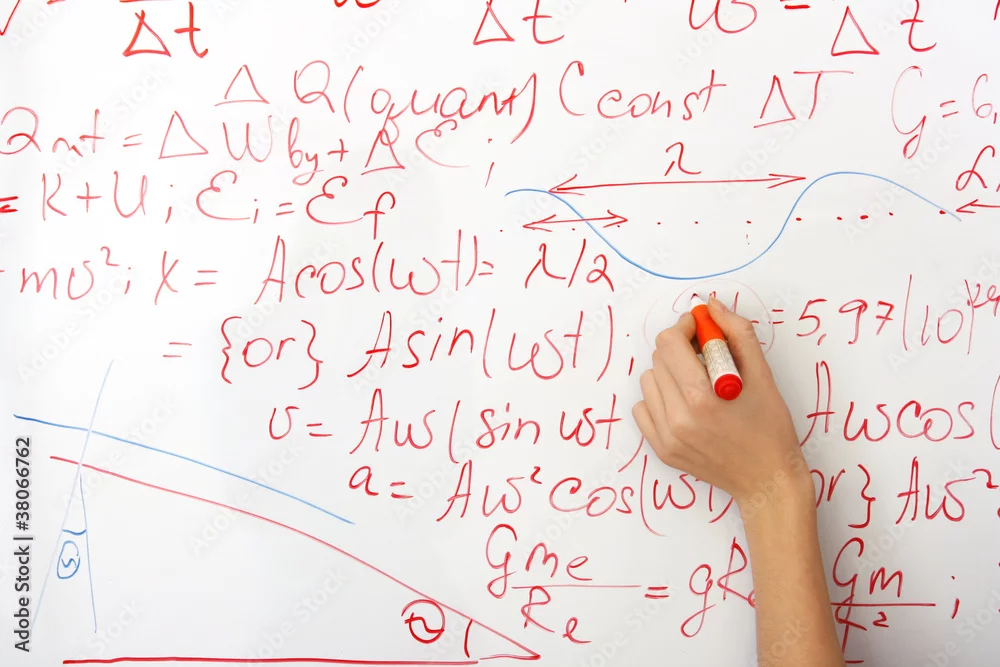 Δt Δt ω = Δt
ΔQ(quant) C const ΔT G = 6,
Qnt = ΔWby + ΔƐ;
= K + U; Ɛi = Ɛf
λ
mv²; X = Acos(ωt) = λ/2
= {or} Asin(ωt); = 5,97(10)
v = Aω(sin ωt) Aωcos(
a = Aω² cos(ωt) or} Aω²
Gme/Re = gR Gm/²;
Adobe Stock | #38066762